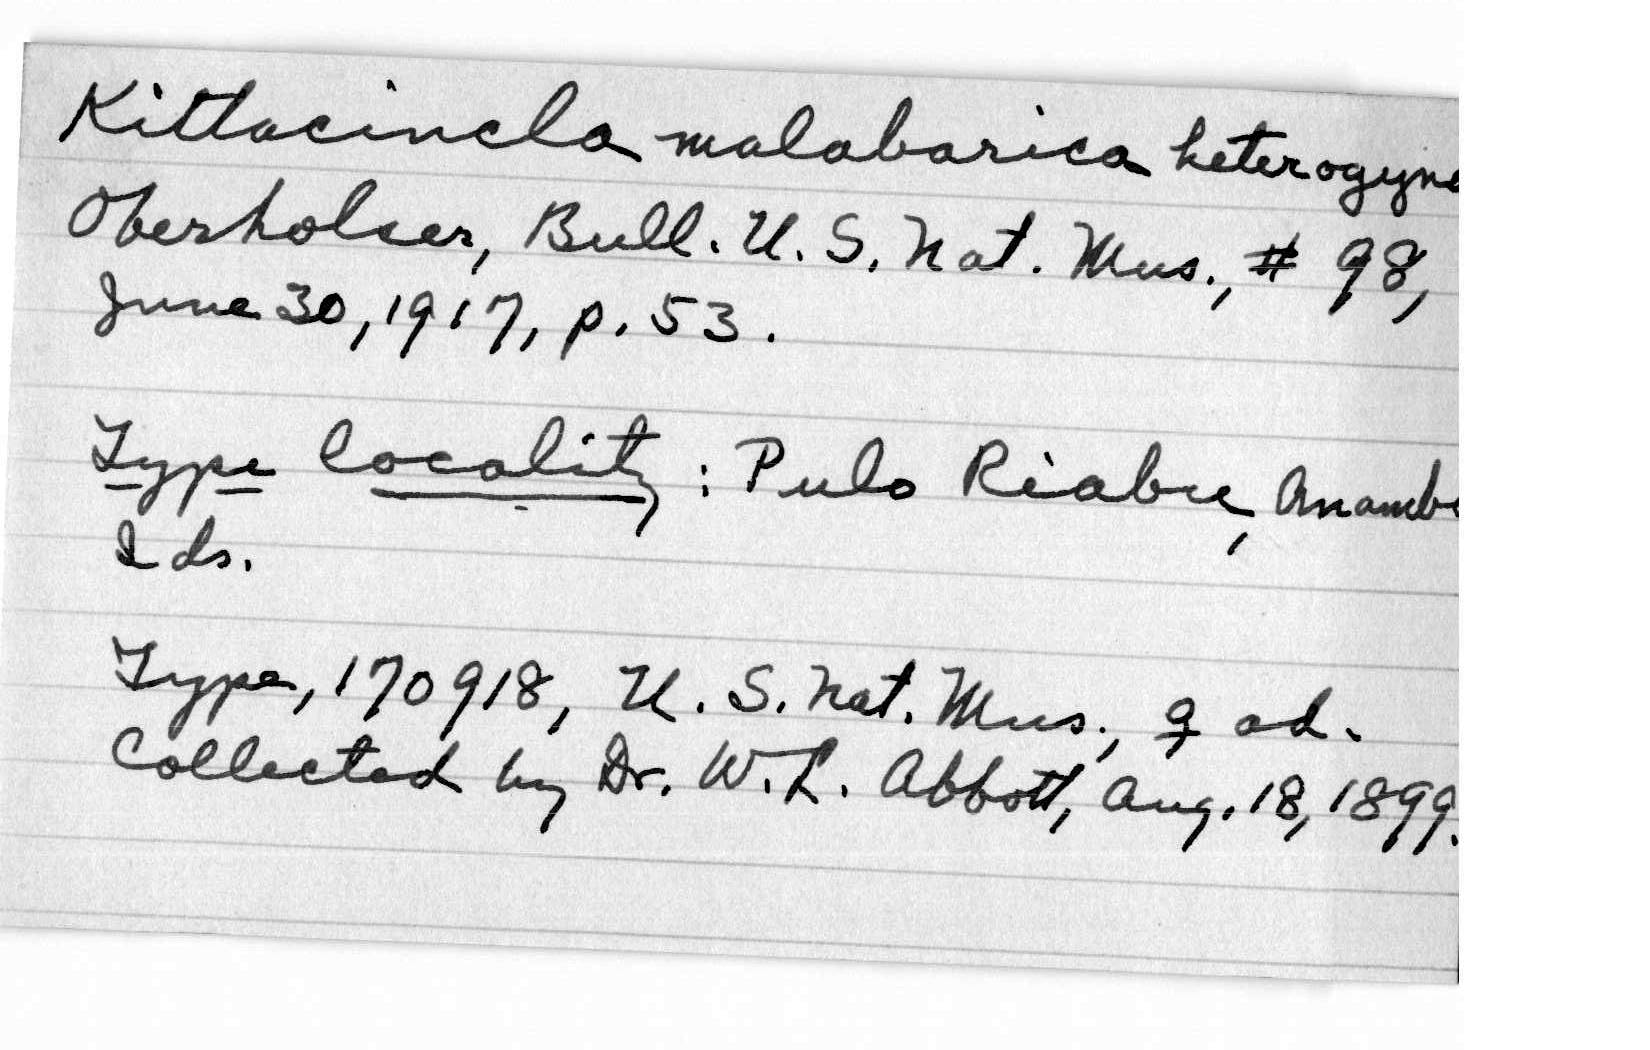 Kittacincla malabarica heterogyne
Oberholser, Bull. U. S. Nat. Mus., # 98,
June 30, 1917, p. 53.
Type locality : Pulo Riabu, Anamba
Ids.
Type, 170918, U. S. Nat. Mus., ♀ ad.
Collected by Dr. W. L. Abbott, Aug. 18, 1899.